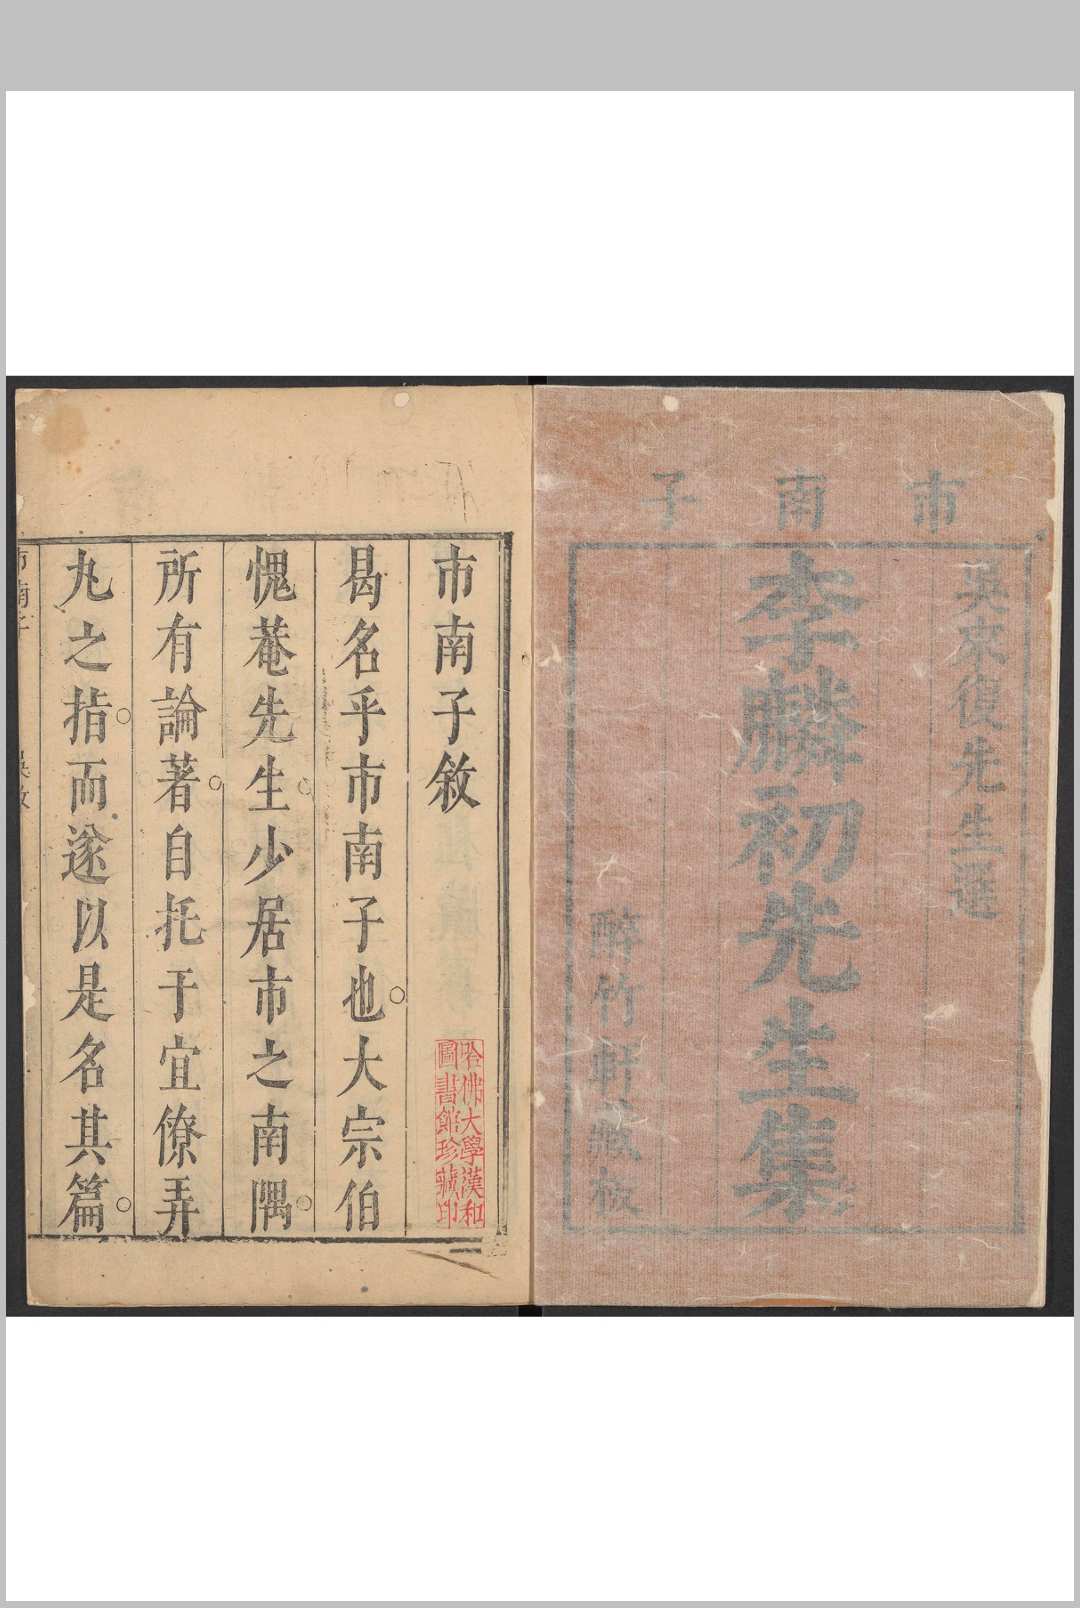 市南子
吳來復先生選
李麟初先生集
醉竹軒藏板
市南子敘
曷名乎市南子也大宗伯
愧菴先生少居市之南隅
所有論著自托于宜僚弄
丸之指而遂以是名其篇
哈佛大學漢和
圖書館珍藏印
市南子
吳敘